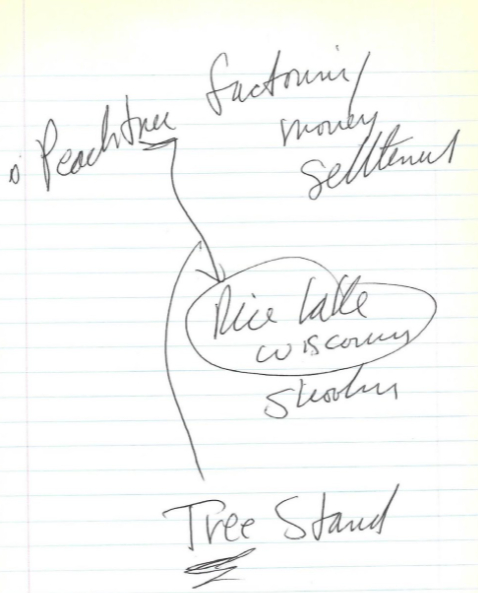 Peachtree factoring/
money
settlement
Rice Lake
Wisconsin
Tree Stand